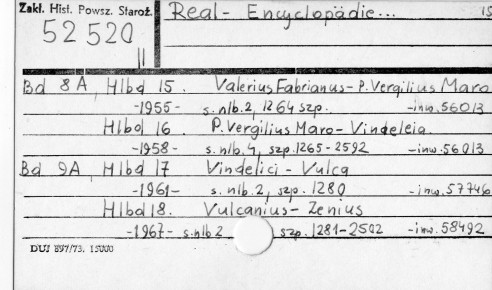 Zakł. Hist. Powsz. Staroż.
52520
II
Real-Encyclopädie... 15
Bd 8A, Hlbd 15. Valerius Fabrianus - P. Vergilius Maro
-1955- s. nlb. 2, 1264 szp. -inw. 56013
Hlbd 16 P. Vergilius Maro - Vindeleia
-1958- s. nlb. 4, szp. 1265-2592 -inw. 56013
Bd 9A, Hlbd 17 Vindelici - Vulca
-1961- s. nlb. 2, szp. 1280 -inw. 57746
Hlbd 18. Vulcanius - Zenius
-1967- s. nlb 2 szp. 1281-2502 -inw. 58492
DUJ 897/73. 15000